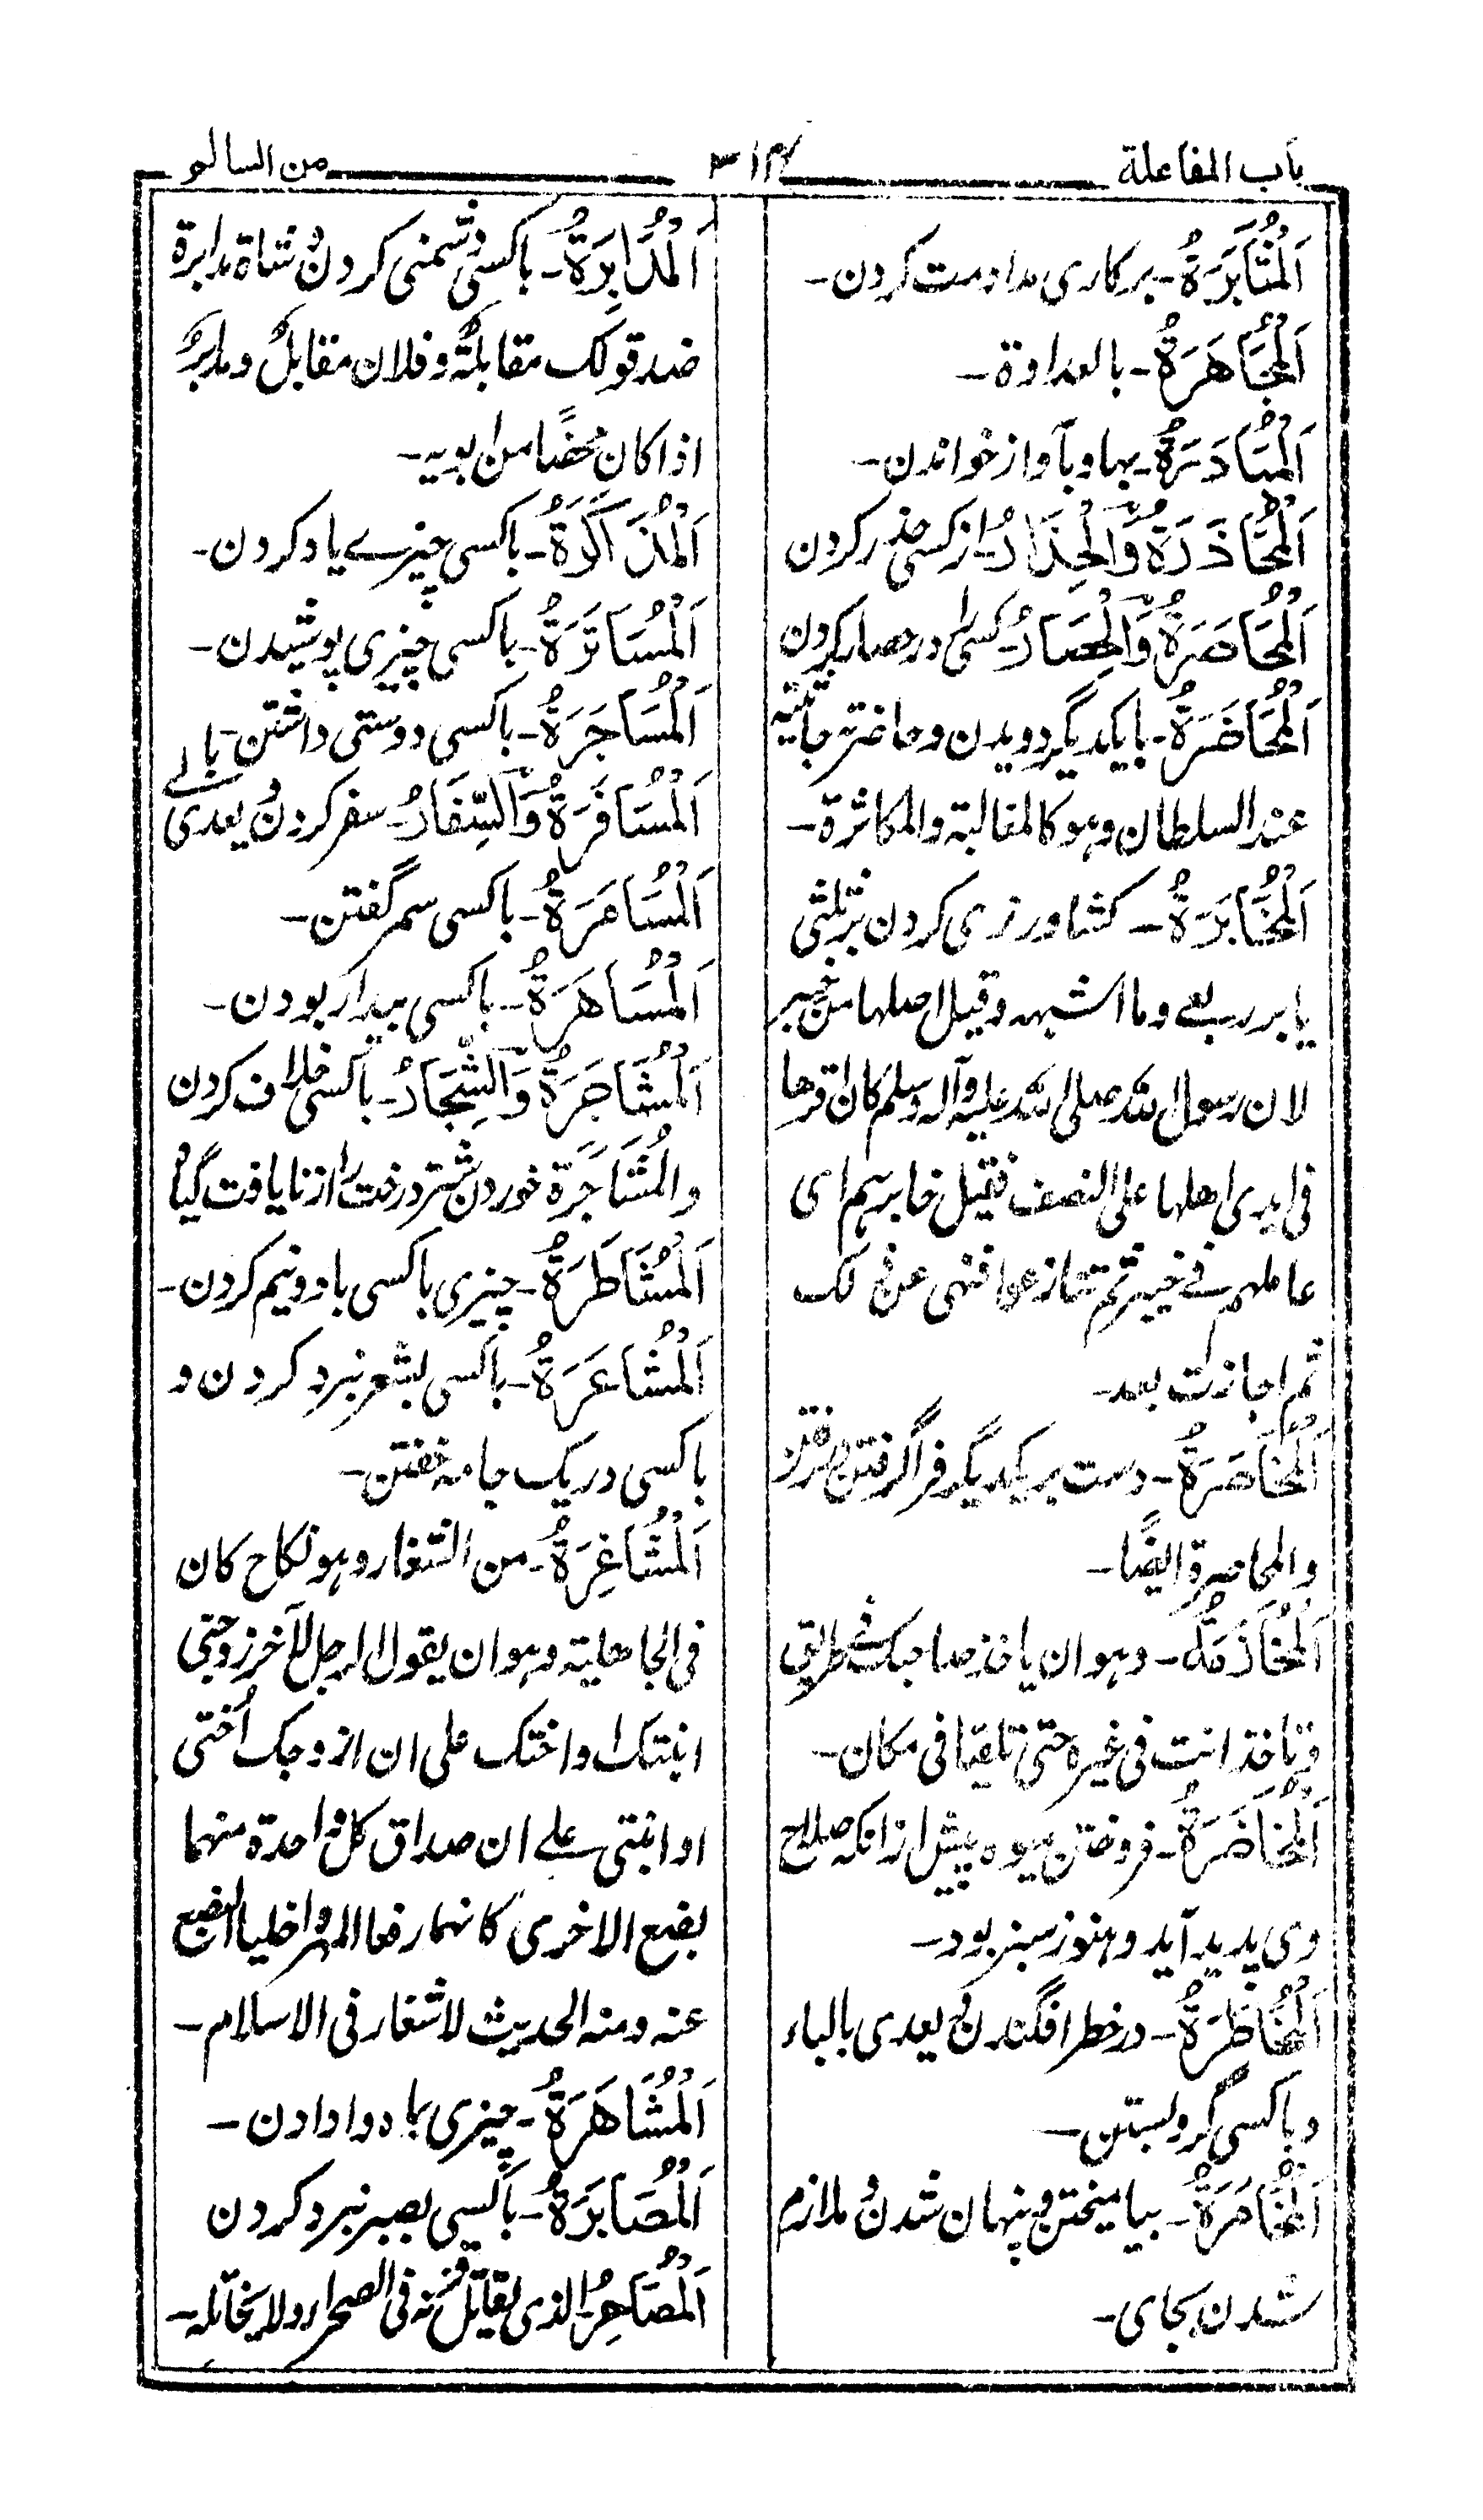 باب المفاعلة
۳۱۴
من السالم
اَلْمُثَابَرَةُ۔ برکاری مداومت کردن۔
اَلْمُجَاهَرَةُ۔ بالعداوة۔
اَلْمُبَادَرَةُ۔
اَلْمُحَاذَرَةُ وَالْحِذَارُ۔ از کسی حذر کردن
اَلْمُحَاصَرَةُ وَالْحِصَارُ۔ کسی را در حصار کردن
اَلْمُحَاضَرَةُ۔ با یکدیگر دویدن و حاضرته جاثیته
عند السلطان وہو کالمغالبة والمکاثرة۔
اَلْمُخَابَرَةُ۔ کشاورزی کردن بر ثلثی
یا بر ربعے وما اشبہہ وقیل اصلہا من خیبر
لان رسول اللہ صلی اللہ علیہ وآلہ وسلم کان اقرہا
فی ایدی اہلہا علی النصف فقیل خابرہم ای
عاملہم فے خیبر ثم تنازعوا فنہی عن ذلک
ثم اجازت بعد۔
اَلْمُخَاصَرَةُ۔ دست بر یکدیگر فراگرفتن در رفتن
والمخاصرة ایضًا۔
اَلْمُخَازَمَةُ۔ وہو ان یاخذ صاحبک فے طریق
وتاخذ انت فی غیرہ حتی تلتقیا فی مکان۔
اَلْمُخَاضَرَةُ۔ فروختن میوہ پیش ازانکہ صلاح
وی پدید آید وہنوز سبز بود۔
اَلْمُخَاطَرَةُ۔ در خطر افگندن و یعدی بالباء
وبا کسی گرو بستن۔
اَلْمُخَامَرَةُ۔ بیامیختن و پنہان شدن و ملازم
شدن بجای۔
اَلْمُدَابَرَةُ۔ با کسی دشمنی کردن و شاة مدابرة
ضد قولک مقابلة و فلان مقابل ومدابر
اذا کان محضًا من ابویہ۔
اَلْمُذَاکَرَةُ۔ با کسی چیزے یاد کردن۔
اَلْمُسَاتَرَةُ۔ با کسی چیزی پوشیدن۔
اَلْمُسَاجَرَةُ۔ با کسی دوستی داشتن۔
اَلْمُسَافَرَةُ وَالسِّفَارُ۔ سفر کردن و یعدی بالے
اَلْمُسَامَرَةُ۔ با کسی سمر گفتن۔
اَلْمُسَاهَرَةُ۔ با کسی بیدار بودن۔
اَلْمُشَاجَرَةُ وَالشِّجَارُ۔ با کسی خلاف کردن
والمُشَاجَرَة خوردن شتر درخت را از نایافت گیاہ
اَلْمُشَاطَرَةُ۔ چیزی با کسی با دو نیم کردن۔
اَلْمُشَاعَرَةُ۔ با کسی بشعر نبرد کردن و
با کسی در یک جامہ خفتن۔
اَلْمُشَاغِرَةُ۔ من الشغار وہو نکاح کان
فی الجاہلیة وہو ان یقول الرجل لآخر زوجنی
ابنتک او اختک علی ان ازوجک اُختی
او ابنتی علے ان صداق کل واحدة منہما
بضع الاخری کانہما رفعا المہر واخلیا البضع
عنہ ومنہ الحدیث لا شغار فی الاسلام۔
اَلْمُشَاهَرَةُ۔ چیزی بماہ وا دادن۔
اَلْمُصَابَرَةُ۔ با کسی بصبر نبرد کردن
اَلْمُصَاحِرُ۔ الذی یقاتل قرنہ فی الصحراء ولا یخاتلہ۔